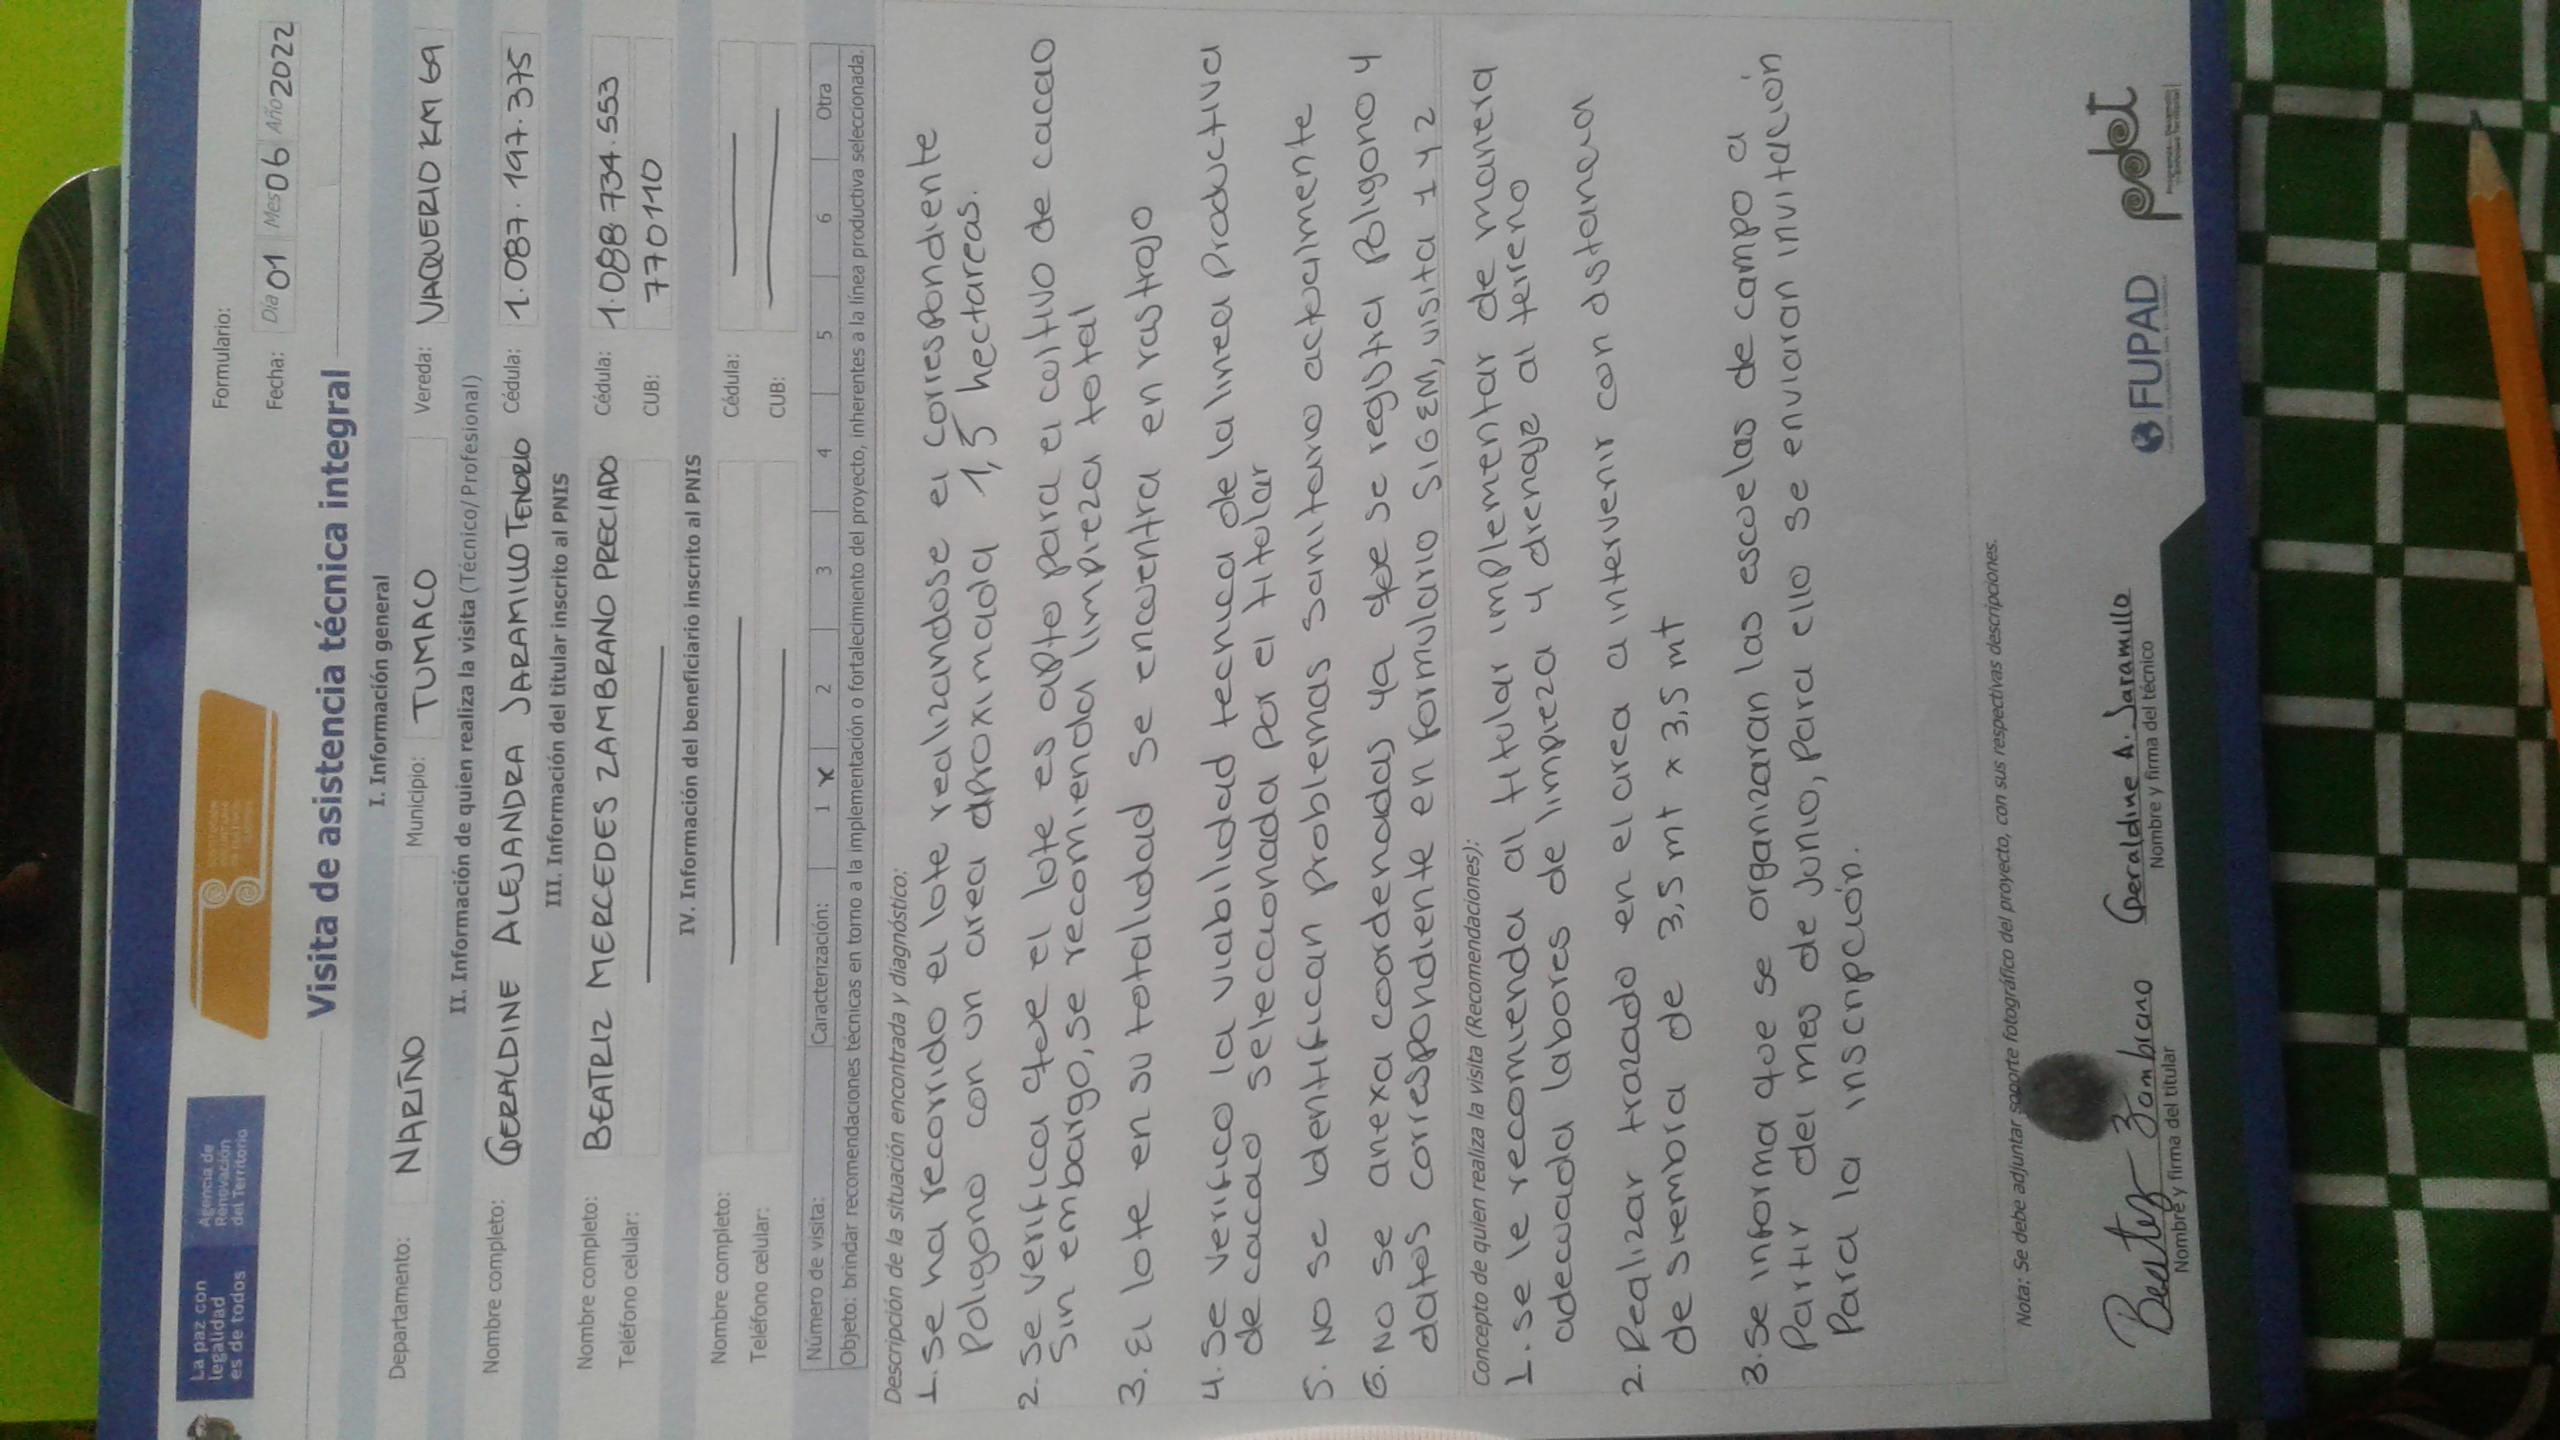 La paz con
legalidad
es de todos
Agencia de
Renovación
del Territorio
Formulario:
Fecha: Día 01 Mes 06 Año 2022
Visita de asistencia técnica integral
I. Información general
Departamento: NARIÑO Municipio: TUMACO Vereda: VAQUERIO KM 69
II. Información de quien realiza la visita (Técnico/ Profesional)
Nombre completo: GERALDINE ALEJANDRA JARAMILLO TENORIO Cédula: 1.087.197.375
III. Información del titular inscrito al PNIS
Nombre completo: BEATRIZ MERCEDES ZAMBRANO PRECIADO Cédula: 1.088 734.553
Teléfono celular: CUB: 770110
IV. Información del beneficiario inscrito al PNIS
Nombre completo: Cédula:
Teléfono celular: CUB:
Número de visita: Caracterización: 1 x 2 3 4 5 6 Otra
Objeto: brindar recomendaciones técnicas en torno a la implementación o fortalecimiento del proyecto, inherentes a la línea productiva seleccionada.
Descripción de la situación encontrada y diagnóstico:
1. Se ha recorrido el lote realizandose el correspondiente
Poligono con un area aproximada 1,5 hectareas.
2. Se verifica que el lote es apto para el cultivo de cacao
Sin embargo, se recomienda limpieza total
3. El lote en su totalidad se encuentra en rastrojo
4. Se verifico la viabilidad tecnica de la linea Productiva
de cacao seleccionada por el titular
5. No se identifican problemas sanitario actualmente
6. No se anexa coordenadas ya que se registra Poligono y
datos correspondiente en formulario SIGEM, visita 1 y 2
Concepto de quien realiza la visita (Recomendaciones):
1. se le recomienda al titular implementar de manera
adecuada labores de limpieza y drenaje al terreno
2. Realizar trazado en el area a intervenir con distancia
de siembra de 3,5 mt x 3,5 mt
3. Se informa que se organizaran las escuelas de campo a
Partir del mes de Junio, para ello se enviaran invitación
Para la inscripción.
Nota: Se debe adjuntar soporte fotográfico del proyecto, con sus respectivas descripciones.
Beatriz Zambrano
Nombre y firma del titular
Geraldine A. Jaramillo
Nombre y firma del técnico
FUPAD
pdet